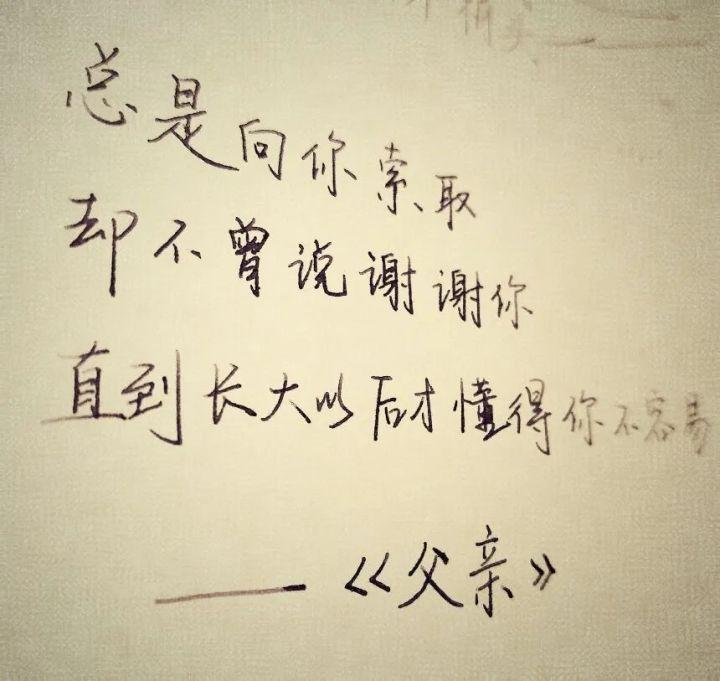 总是向你索取
却不曾说谢谢你
直到长大以后才懂得你不容易
——《父亲》